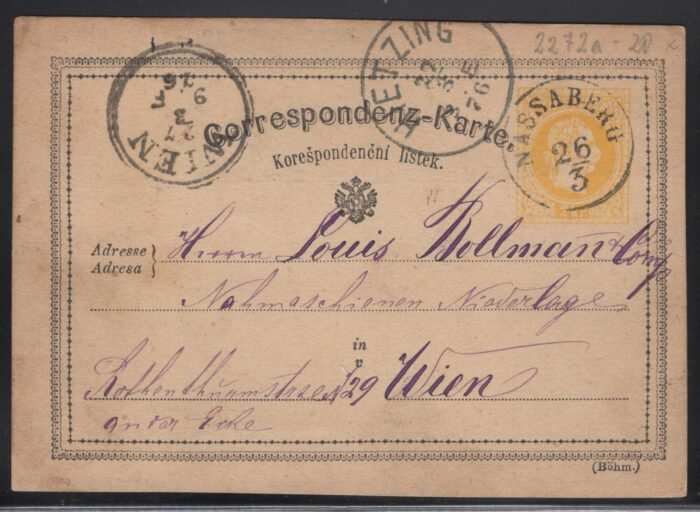 2272a - 20
HIETZING
WIEN
27
3
9 F
76
NASSABERG
26/3
Correspondenz-Karte.
Korešpondenční lístek.
Adresse
Adresa
Herrn Louis Bollmann & Comp
Nahmaschienen Niederlage
in
v
Rothenthurmstrasse 29 Wien
an der Ecke
(Böhm.)